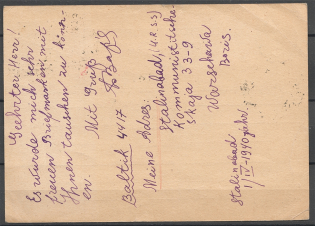 Geehrter Herr!
Es würde mich sehr
freuen Briefmarken mit
Ihnen tauschen zu könn-
en.
Mit Gruß:
Baltik 4417
Meine Adres.
Stalinabad, (U.R.S.S)
Kommunistitsche-
skaja 33-9
Warschawa
Boris.
Stalinabad
1/IV-1940 jahr.